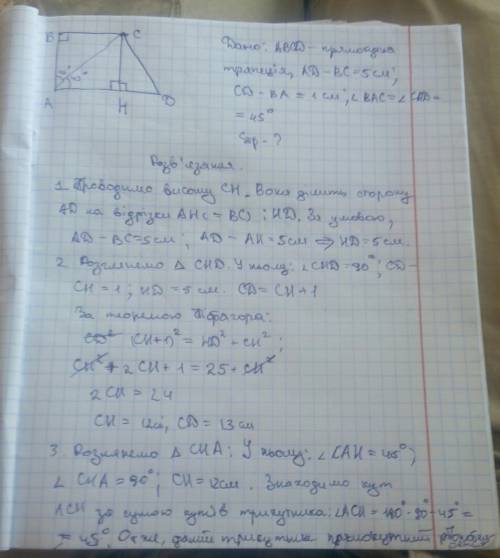 B
C
A
H
D
45°
Дано: ABCD - прямокутна
трапеція, AD - BC = 5 см;
CD - BA = 1 см; ∠BAC = ∠CAD =
= 45°
Sтр - ?
Розв'язання.
1. Проводимо висоту CH. Вона ділить сторону
AD на відрізки AH (= BC) і HD. За умовою,
AD - BC = 5 см; AD - AH = 5 см ⇒ HD = 5 см.
2. Розглянемо △ CHD. У ньому: ∠CHD = 90°; CD -
CH = 1; HD = 5 см. CD = CH + 1
За теоремою Піфагора:
(CH + 1)² = HD² + CH²;
CH² + 2CH + 1 = 25 + CH²
2CH = 24
CH = 12см, CD = 13 см
3. Розглянемо △ CHA: У ньому: ∠CAH = 45°,
∠ CHA = 90°; CH = 12см. Знаходимо кут
ACH за сумою кутів трикутника: ∠ACH = 180° - 90° - 45° =
= 45°. Отже, даний трикутник прямокутний